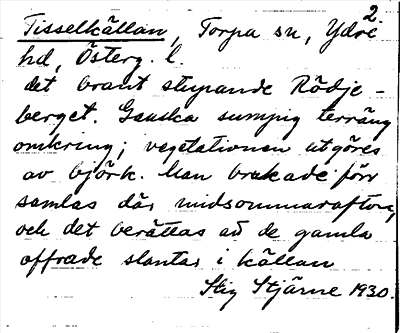 2.
Tisselkällan, Torpa sn, Ydre
hd, Österg. l.
det brant stupande Rödje-
berget. Ganska sumpig terräng
omkring; vegetationen utgöres
av björk. Man brukade förr
samlas där midsommarafton,
och det berättas att de gamla
offrade slantar i källan
Stig Stjärne 1930.